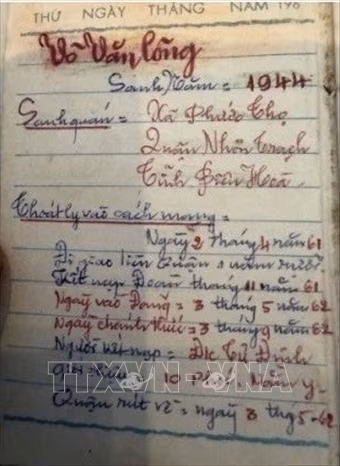 THỨ NGÀY THÁNG NĂM 196
Võ Văn Lõng
Sanh Năm = 1944
Sanh quán = Xã Phước Thọ
Quận Nhơn Trạch
Tỉnh Biên Hoà
Thoát ly vào cách mạng =
Ngày 2 tháng 4 năm 61
Đi giao liên Quận 1 năm rưởi
Kết nạp Đoàn tháng 11 năm 61
Ngày vào Đảng = 3 tháng 5 năm 62
Ngày chánh thức = 3 tháng 9 năm 62
Người kết nạp = Đ/c Tư Đinh
Giới thiệu 10 Phấn Năm y
Quận rút về = ngày 3 thg 5-62
TTXVN-QNA